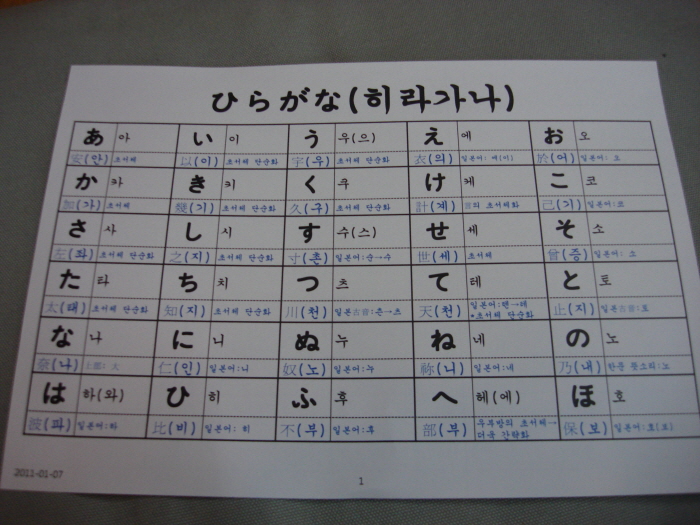 ひらがな(히라가나)
あ 아 い 이 う 우(으) え 에 お 오
安(안) 초서체 以(이) 초서체 단순화 宇(우) 초서체 단순화 衣(의) 일본어: 에(이) 於(어) 일본어: 오
か 카 き 키 く 쿠 け 케 こ 코
加(가) 초서체 幾(기) 초서체 단순화 久(구) 초서체 단순화 計(계) 초서체화 己(기) 일본어:코
さ 사 し 시 す 수(스) せ 세 そ 소
左(좌) 초서체 단순화 之(지) 초서체 단순화 寸(촌) 일본어:순→수 世(세) 초서체 曾(증) 일본어: 소
た 타 ち 치 つ 츠 て 테 と 토
太(태) 초서체 단순화 知(지) 초서체 단순화 川(천) 일본古音:츤→츠 天(천) 일본어:텐→테 *초서체 단순화 止(지) 일본古音:토
な 나 に 니 ぬ 누 ね 네 の 노
奈(나) 仁(인) 일본어:니 奴(노) 일본어:누 祢(니) 일본어:네 乃(내) 한문 뜻소리:노
は 하(와) ひ 히 ふ 후 へ 헤(에) ほ 호
波(파) 일본어:하 比(비) 일본어: 히 不(부) 일본어:후 部(부) 우부방의 초서체→ 더욱 간략화 保(보) 일본어:호(오)
2011-01-07
1